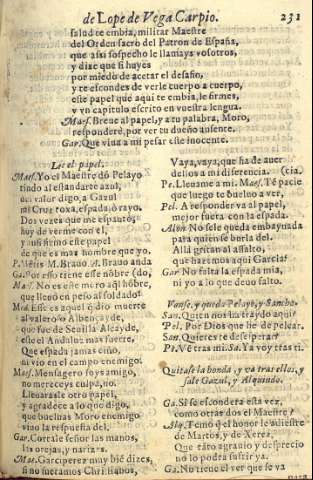 de Lope de Vega Carpio. 231
salud te embia, militar Maestre
del Orden sacro del Patron de España,
que assi sospecho le llamays vosotros,
y dize que si huyes
por miedo de acetar el desafio,
y te escondes de verle cuerpo a cuerpo,
este papel que aqui te embia, le firmes,
y vn capitulo escrito en vuestra lengua.
Maes. Breue al papel, y a tu palabra, Moro,
responderè, por ver tu dueño ausente.
Gar. Que viua a mi pesar este inocente.
Lee el papel.
Maes. Yo el Maestre dō Pelayo
rindo al estandarte azul,
del valor digo, a Gazul
mi Cruz roxa, espada, ò rayo.
Dos vezes que me espantò,
huy de verme con el,
y aun firmo este papel
de que es mas hombre que yo.
Maes. No es este moro aql hōbre,
que llenò en peso al soldado?
Mo. Esse es aquel q̄ dio muerte
al valeroso Albenzayde,
que fue de Seuilla Alcayde,
esse el Andaluz mas fuerte,
Que espada jamas ciño,
ni vio en el campo enemigo.
Maes. Mensagero soys amigo,
no mereceys culpa, no.
Lleuarasle otro papel,
y agradece a lo que digo,
que bueluas Moro enemigo
viuo la respuesta del.
Gar. Cortale señor las manos,
las orejas, y narizes.
Maes. Garciperez muy biē dizes,
si no fueramos Christianos,
Vaya, vaya, que ha de auer
dellos a mi diferencia. (cia.
Pe. Lleuame a mi. Maes. Tē pacie
que luego te bueluo a ver,
Pel. A responder va al papel,
mejor fuera con la espada.
Alon. No sele queda embaynada
para quien se burla del.
Allà gritan al assalto,
que haremos aqui Garcia?
Gar. No falta la espada mia,
ni yo a lo que deuo falto.
Vanse, y queda Pelayo, y Sancho.
San. Quien nos ha traydo aqui?
Pel. Por Dios que he de pelear.
San. Quieres te desesperar?
Pe. Vē tras mi. Sa. Ya voy tras ti.
Quitase la honda, y va tras ellos, y
sale Gazul, y Alquindo.
Ga. Si se escondera esta vez,
como otras dos el Maestre?
Alq. Temo q̄ el honor le adiestre
de Martos, y de Xerez,
Que tāto agrauio y desprecio
no lo podra sufrir ya.
Ga. No tiene el ver que se va